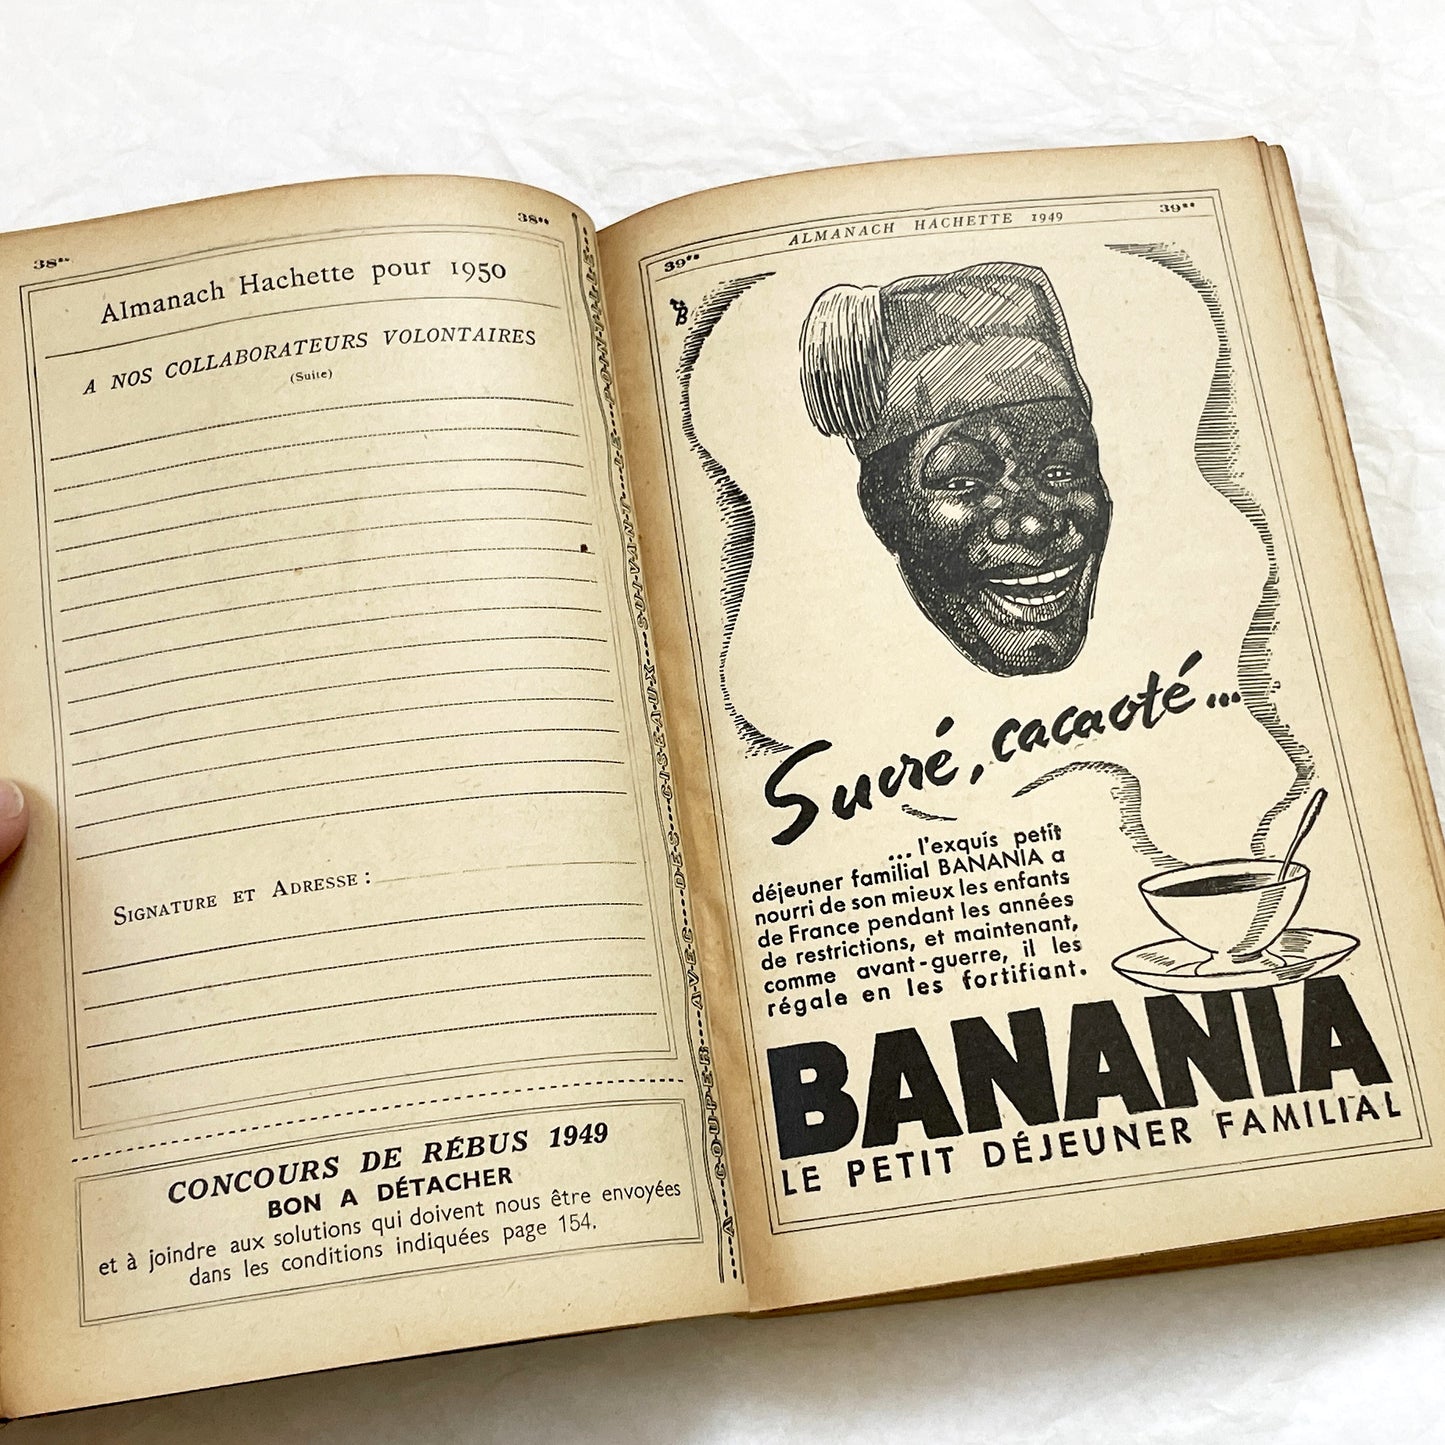 38**
38**
Almanach Hachette pour 1950
A NOS COLLABORATEURS VOLONTAIRES
(Suite)
SIGNATURE ET ADRESSE :
CONCOURS DE RÉBUS 1949
BON A DÉTACHER
et à joindre aux solutions qui doivent nous être envoyées
dans les conditions indiquées page 154.
A COUPER AVEC DES CISEAUX SUIVANT LE POINTILLÉ
39**
ALMANACH HACHETTE 1949
39**
Sucré, cacaoté...
...l'exquis petit
déjeuner familial BANANIA a
nourri de son mieux les enfants
de France pendant les années
de restrictions, et maintenant,
comme avant-guerre, il les
régale en les fortifiant.
BANANIA
LE PETIT DÉJEUNER FAMILIAL